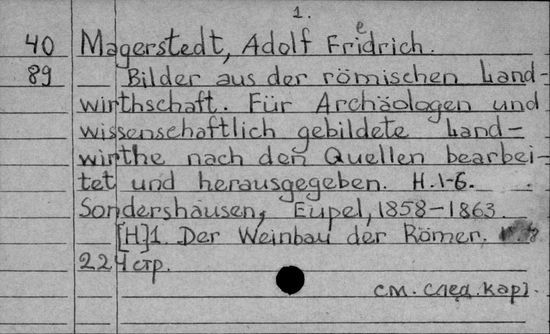 1.
40 Magerstedt, Adolf Friedrich.
89 Bilder aus der römischen Land-
wirthschaft. Für Archäologen und
wissenschaftlich gebildete Land-
wirthe nach den Quellen bearbei-
tet und herausgegeben. H.1-6.
Sondershausen, Eupel, 1858-1863.
[H]1. Der Weinbau der Römer.
224 стр.
см. след. карт.